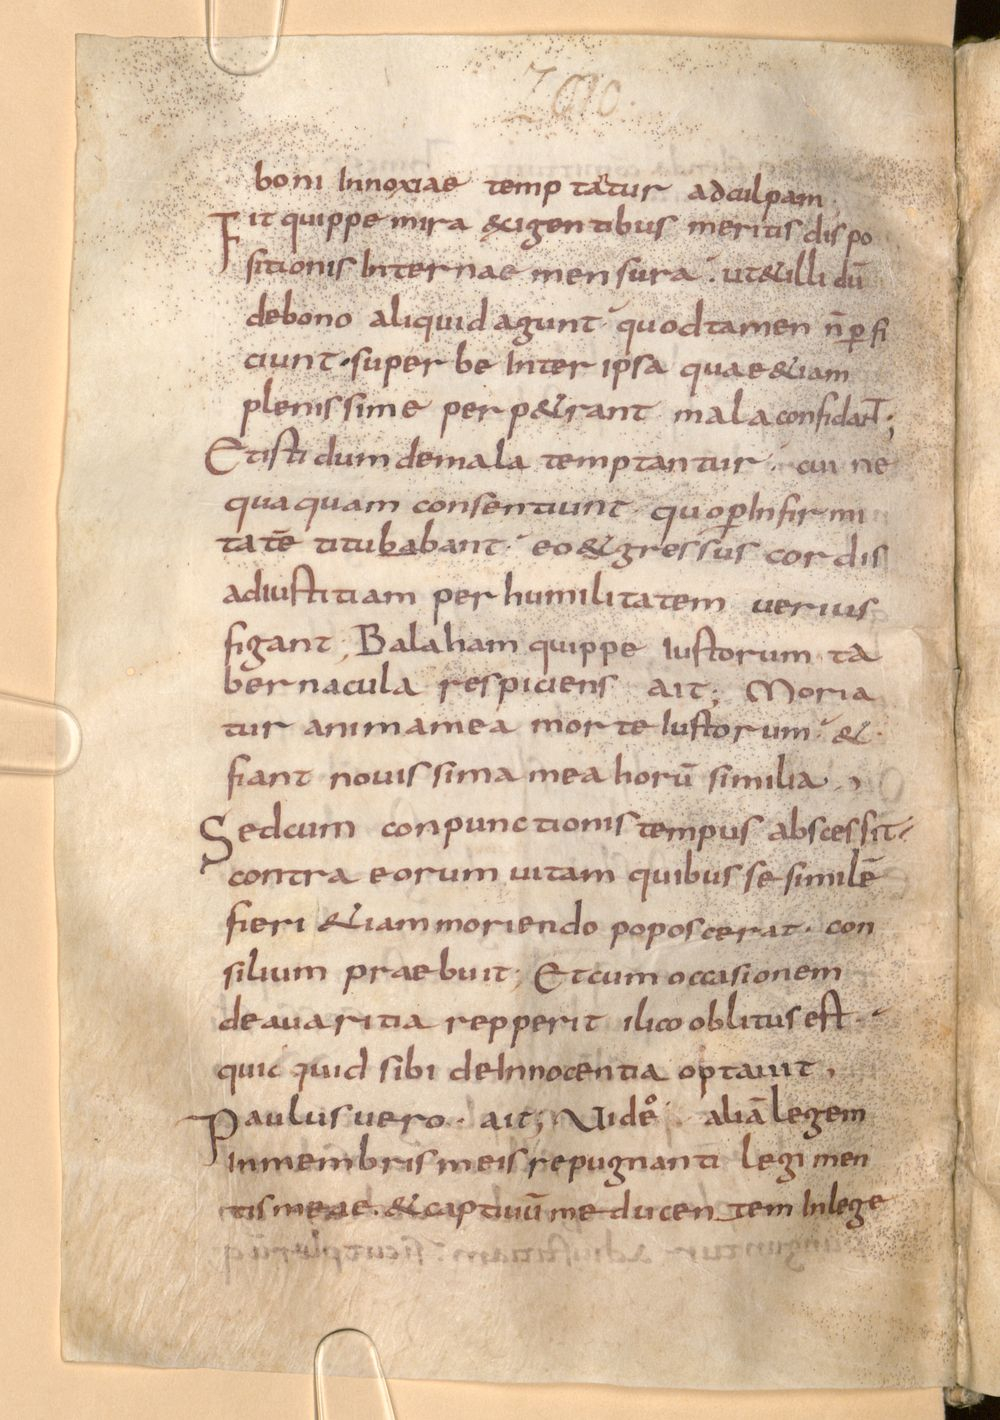 boni Innoxiae temptatur adculpam
Fit quippe mira &exigentibus meritis dispo
sitionis Internae mensura. ut&illi dū
debono aliquid agunt quodtamen n̄ ꝑfi
ciunt. superbe Inter ipsa quae&iam
plenissime perp&rant mala confidant;
Etisti dum demala temptantur. cui ne
quaquam consentiunt. quo ꝑ Infirmi
tatē titubabant. eo&gressus cordis
adiustitiam per humilitatem verius
figant; Balaham quippe Iustorum ta
bernacula respiciens ait; Moria
tur animamea morte Iustorum. &
fiant novissima mea horū similia.
Sedcum conpunctionis tempus abscessit.
contra eorum uitam quibus se similē
fieri &iam moriendo poposcerat. con
silium praebuit; Etcum occasionem
deavaritia repperit ilico oblitus est.
quic quid sibi deInnocentia optavit.
Paulus vero. ait; Uideo aliā legem
Inmembris meis repugnantē legi men
tis meae. &captiuū me ducentem Inlege